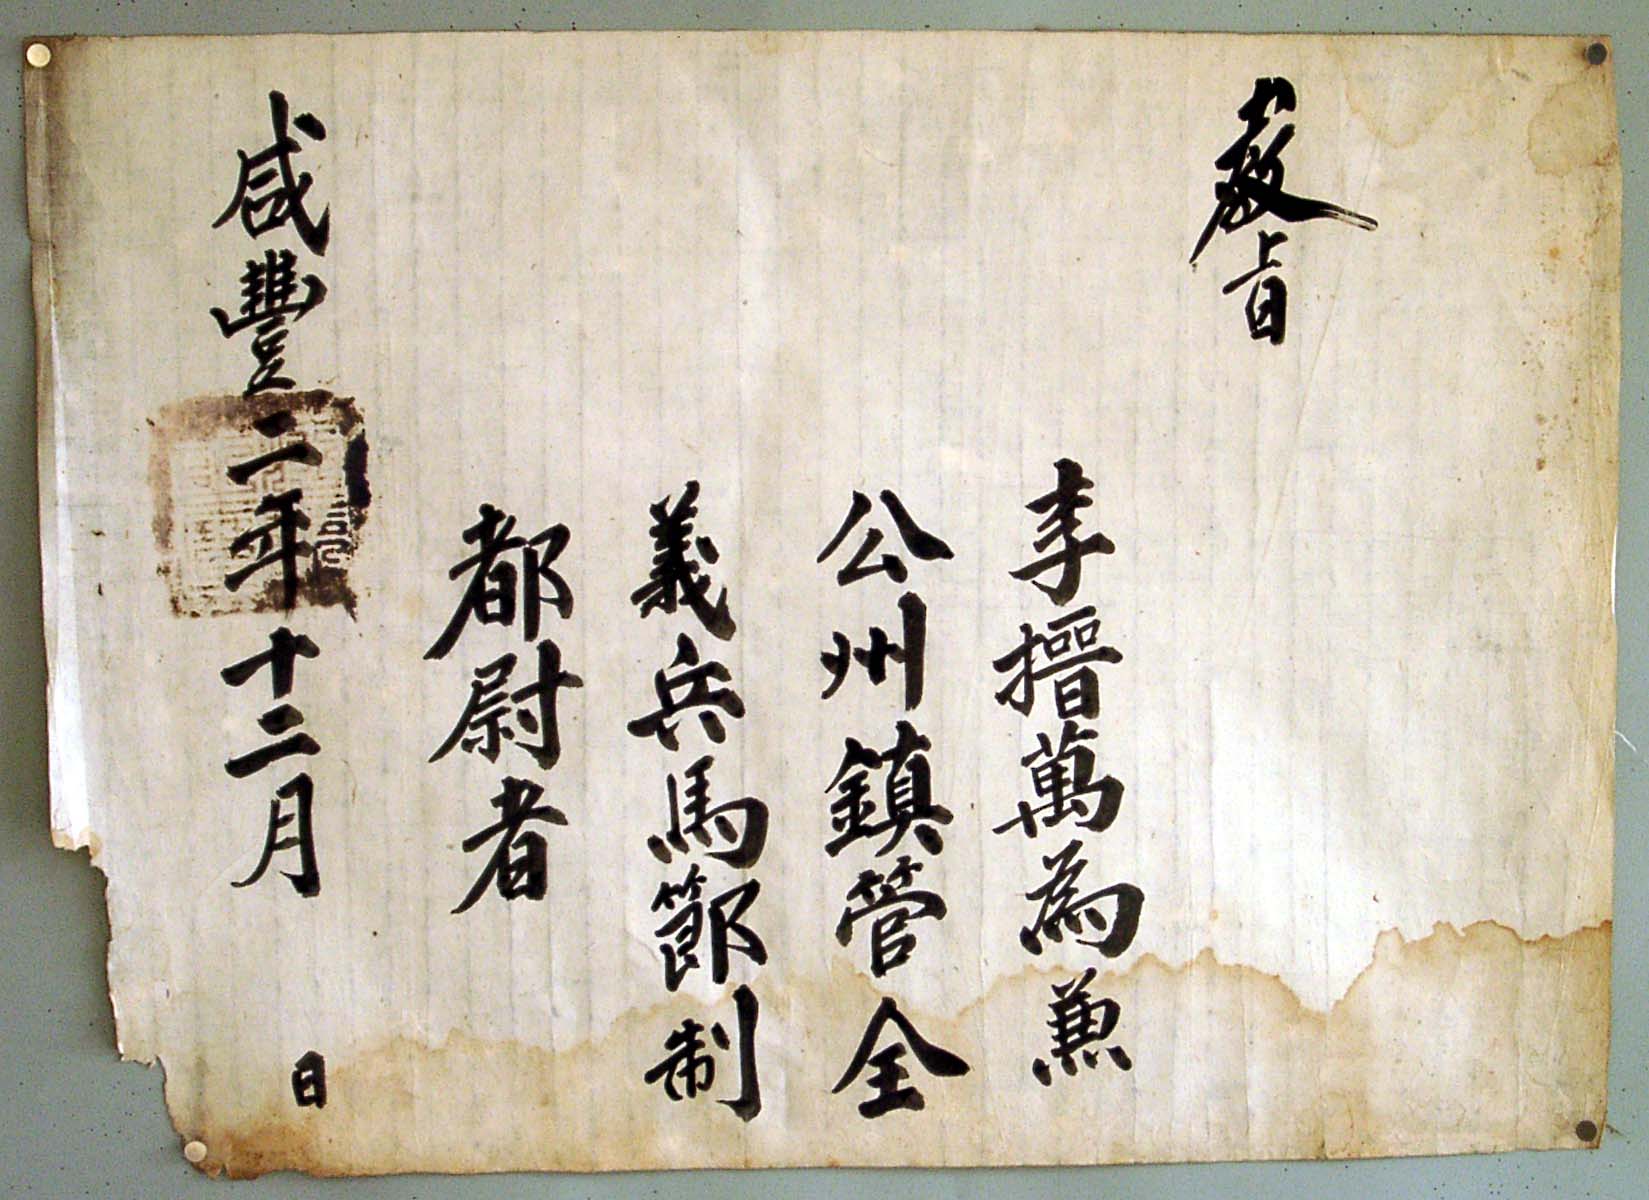 教旨
李搢萬為兼
公州鎮管全
義兵馬節制
都尉者
咸豐二年十二月 日